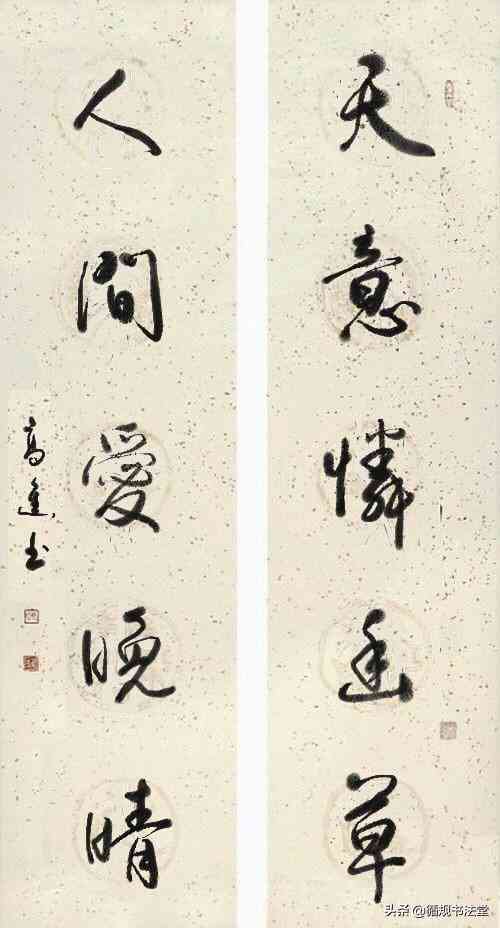 天意憐幽草
人間愛晚晴
高進书
头条 @循规书法堂